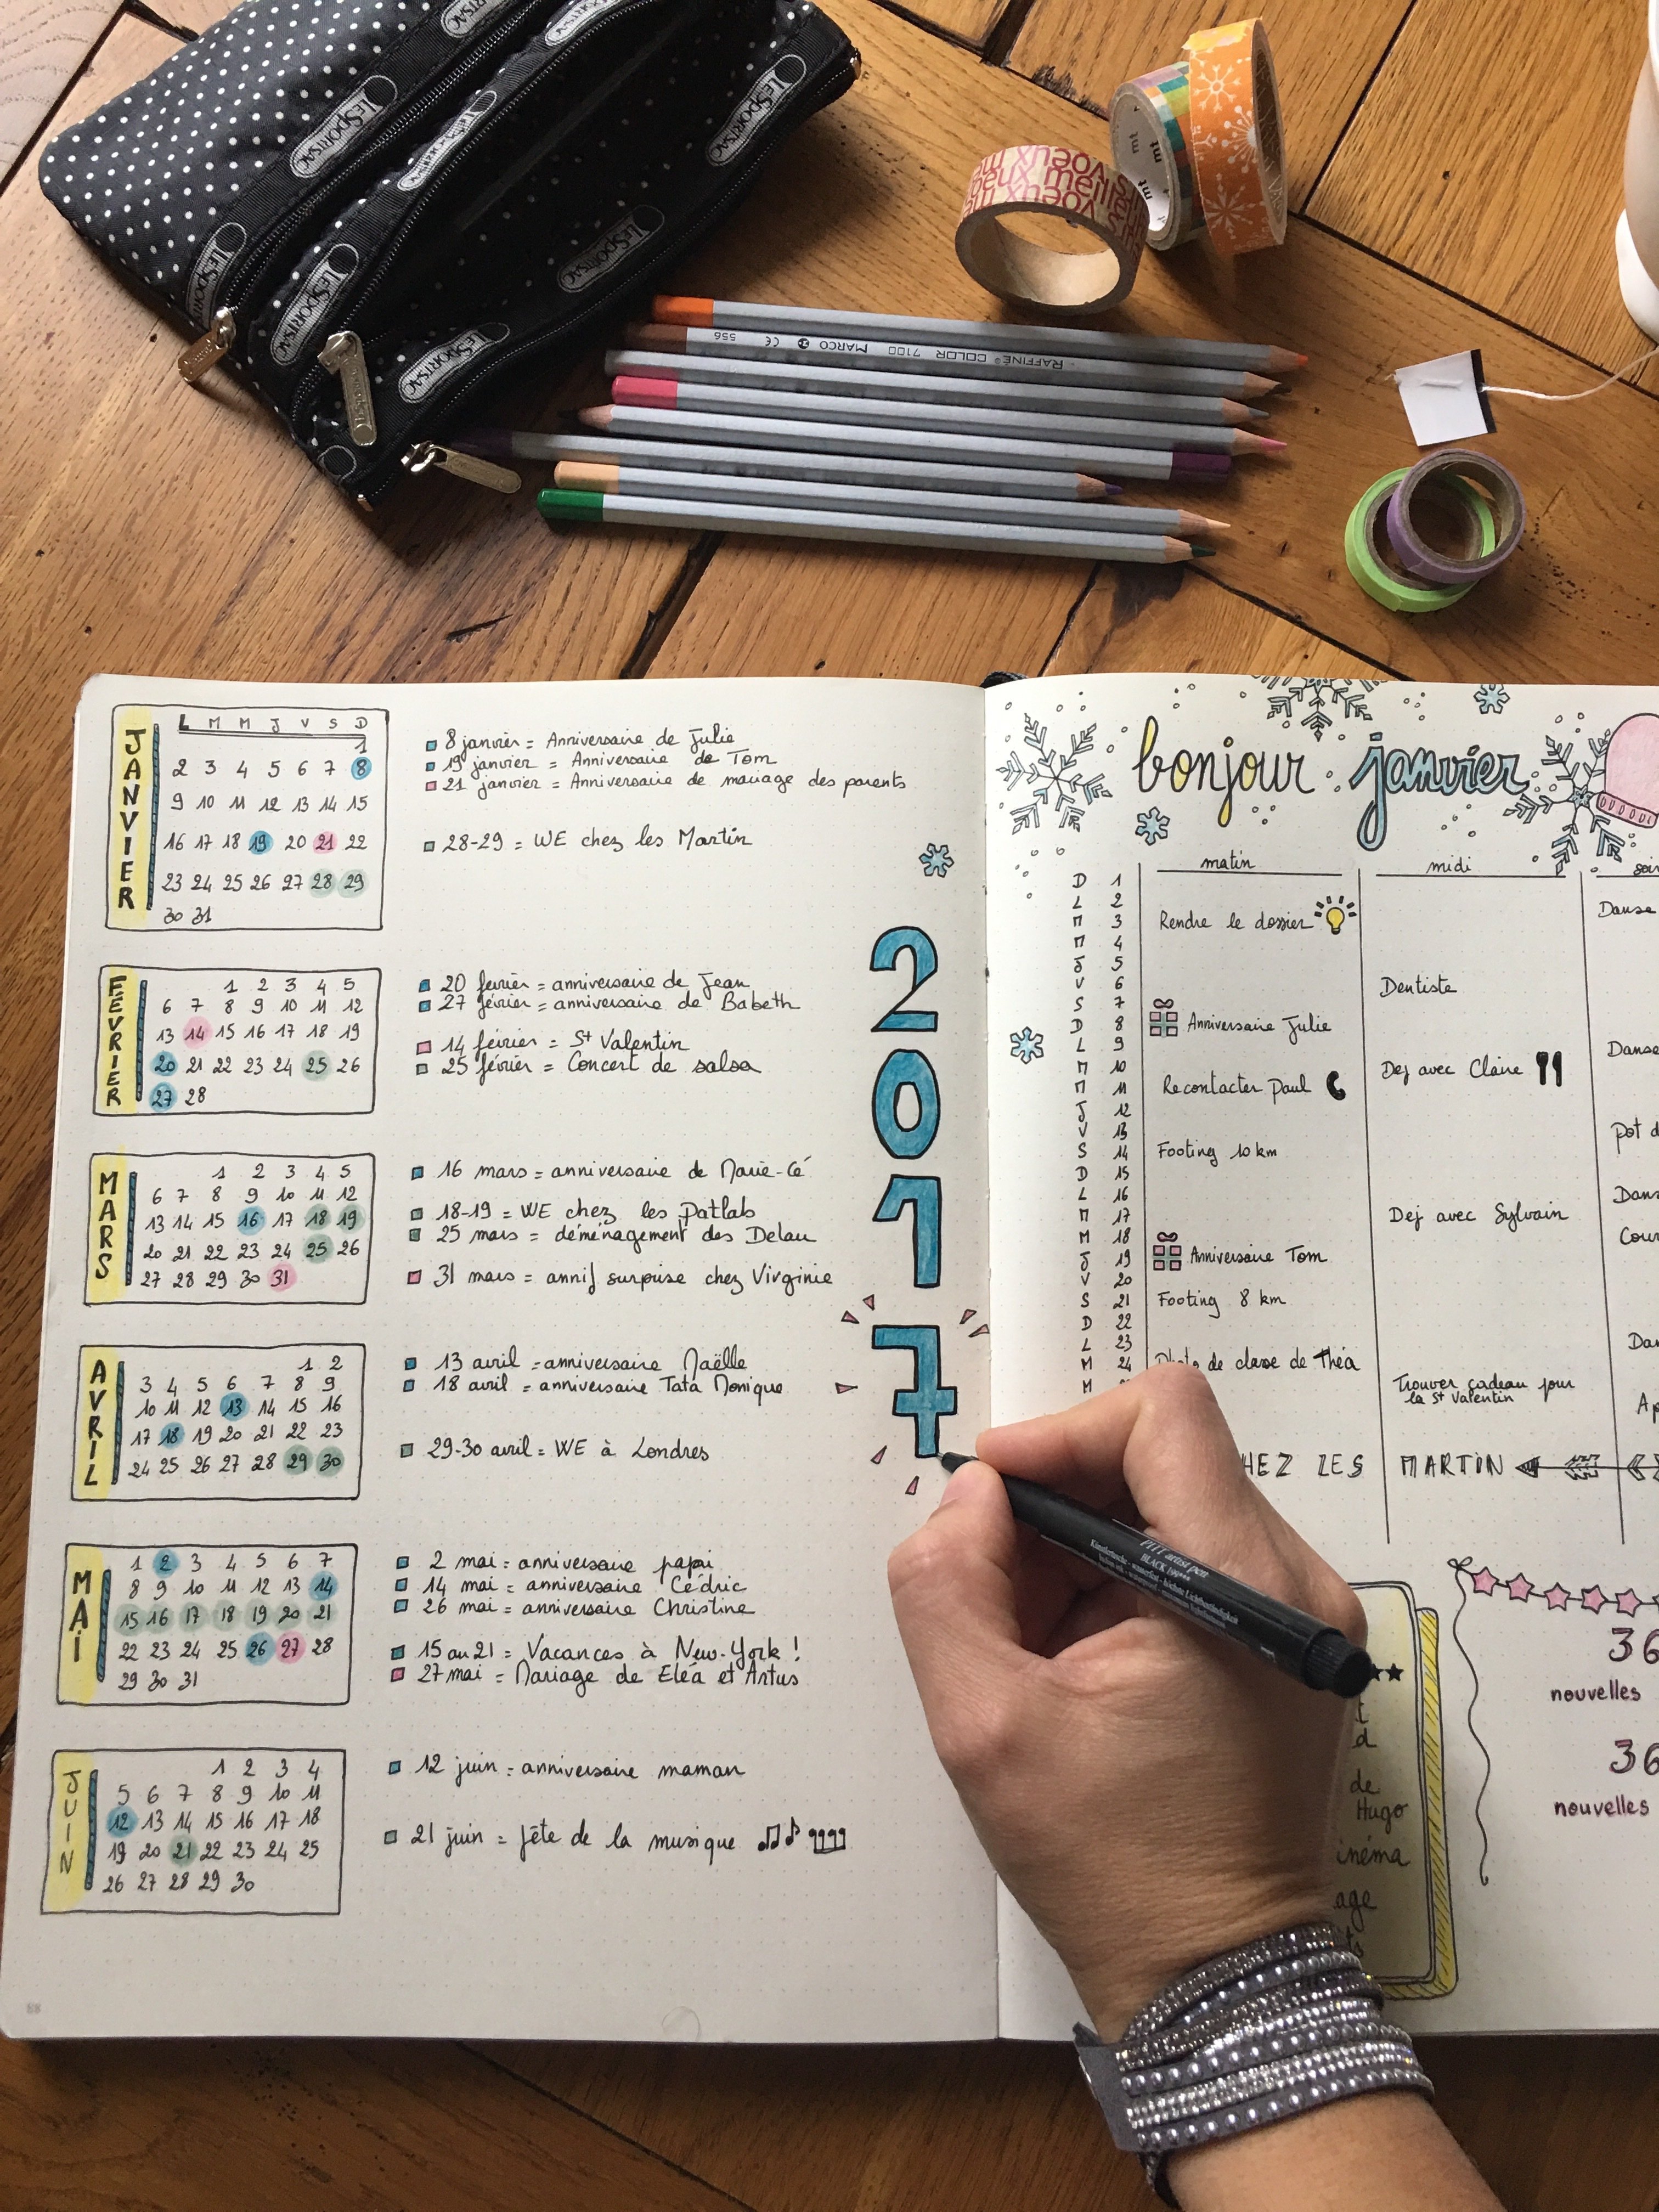 LeSportsac
LeSportsac
LeSportsac
LeSportsac
LeSportsac
LeSportsac
LeSportsac
voeux
voeux meille
voeux
mt
mt
RAFFINÉ COLOR 7100 MARCO CE 556
JANVIER
L M M J V S D
1
2 3 4 5 6 7 8
9 10 11 12 13 14 15
16 17 18 19 20 21 22
23 24 25 26 27 28 29
30 31
8 janvier = Anniversaire de Julie
19 janvier = Anniversaire de Tom
21 janvier = Anniversaire de mariage des parents
28-29 = WE chez les Martin
FÉVRIER
1 2 3 4 5
6 7 8 9 10 11 12
13 14 15 16 17 18 19
20 21 22 23 24 25 26
27 28
20 février = anniversaire de Jean
27 février = anniversaire de Babeth
14 février = St Valentin
25 février = Concert de salsa
MARS
1 2 3 4 5
6 7 8 9 10 11 12
13 14 15 16 17 18 19
20 21 22 23 24 25 26
27 28 29 30 31
16 mars = anniversaire de Marie-Cé
18-19 = WE chez les Patlab
25 mars = déménagement des Delau
31 mars = annif surprise chez Virginie
AVRIL
1 2
3 4 5 6 7 8 9
10 11 12 13 14 15 16
17 18 19 20 21 22 23
24 25 26 27 28 29 30
13 avril = anniversaire Maëlle
18 avril = anniversaire Tata Monique
29-30 avril = WE à Londres
MAI
1 2 3 4 5 6 7
8 9 10 11 12 13 14
15 16 17 18 19 20 21
22 23 24 25 26 27 28
29 30 31
2 mai = anniversaire papi
14 mai = anniversaire Cédric
26 mai = anniversaire Christine
15 au 21 = Vacances à New-York !
27 mai = Mariage de Eléa et Artus
JUIN
1 2 3 4
5 6 7 8 9 10 11
12 13 14 15 16 17 18
19 20 21 22 23 24 25
26 27 28 29 30
12 juin = anniversaire maman
21 juin = fête de la musique
2017
bonjour janvier
matin midi soir
D 1
L 2 Danse
M 3 Rendre le dossier
M 4
J 5
V 6 Dentiste
S 7
D 8 Anniversaire Julie
L 9 Danse
M 10 Dej avec Claire
M 11 Recontacter Paul
J 12
V 13 pot d
S 14 Footing 10 km
D 15
L 16 Dans
M 17 Dej avec Sylvain
M 18 Cour
J 19 Anniversaire Tom
V 20
S 21 Footing 8 km
D 22
L 23 Dan
M 24 Photo de classe de Théa
M Trouver cadeau pour
la St Valentin
Ap
HEZ LES MARTIN
PITT artist pen
BLACK 199
de
Hugo
inéma
age
ts
36
nouvelles
36
nouvelles